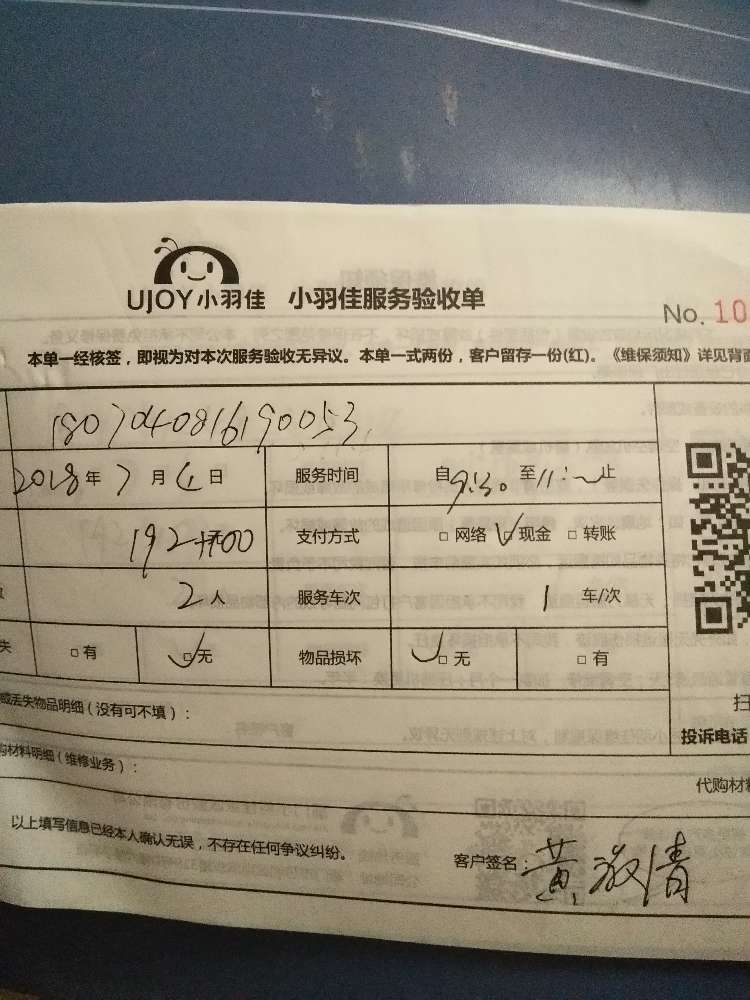 UJOY小羽佳 小羽佳服务验收单
No. 10
本单一经核签，即视为对本次服务验收无异议。本单一式两份，客户留存一份(红)。《维保须知》详见背面
1807040816190053
2018年7月4日 服务时间 自9:30至11:~止
192 元 支付方式 □网络 □现金 □转账
2人 服务车次 1 车/次
失 □有 □无 物品损坏 □无 □有
或丢失物品明细（没有可不填）：
扫
投诉电话
购材料明细（维修业务）：
代购材料
以上填写信息已经本人确认无误，不存在任何争议纠纷。
客户签名：黄 清